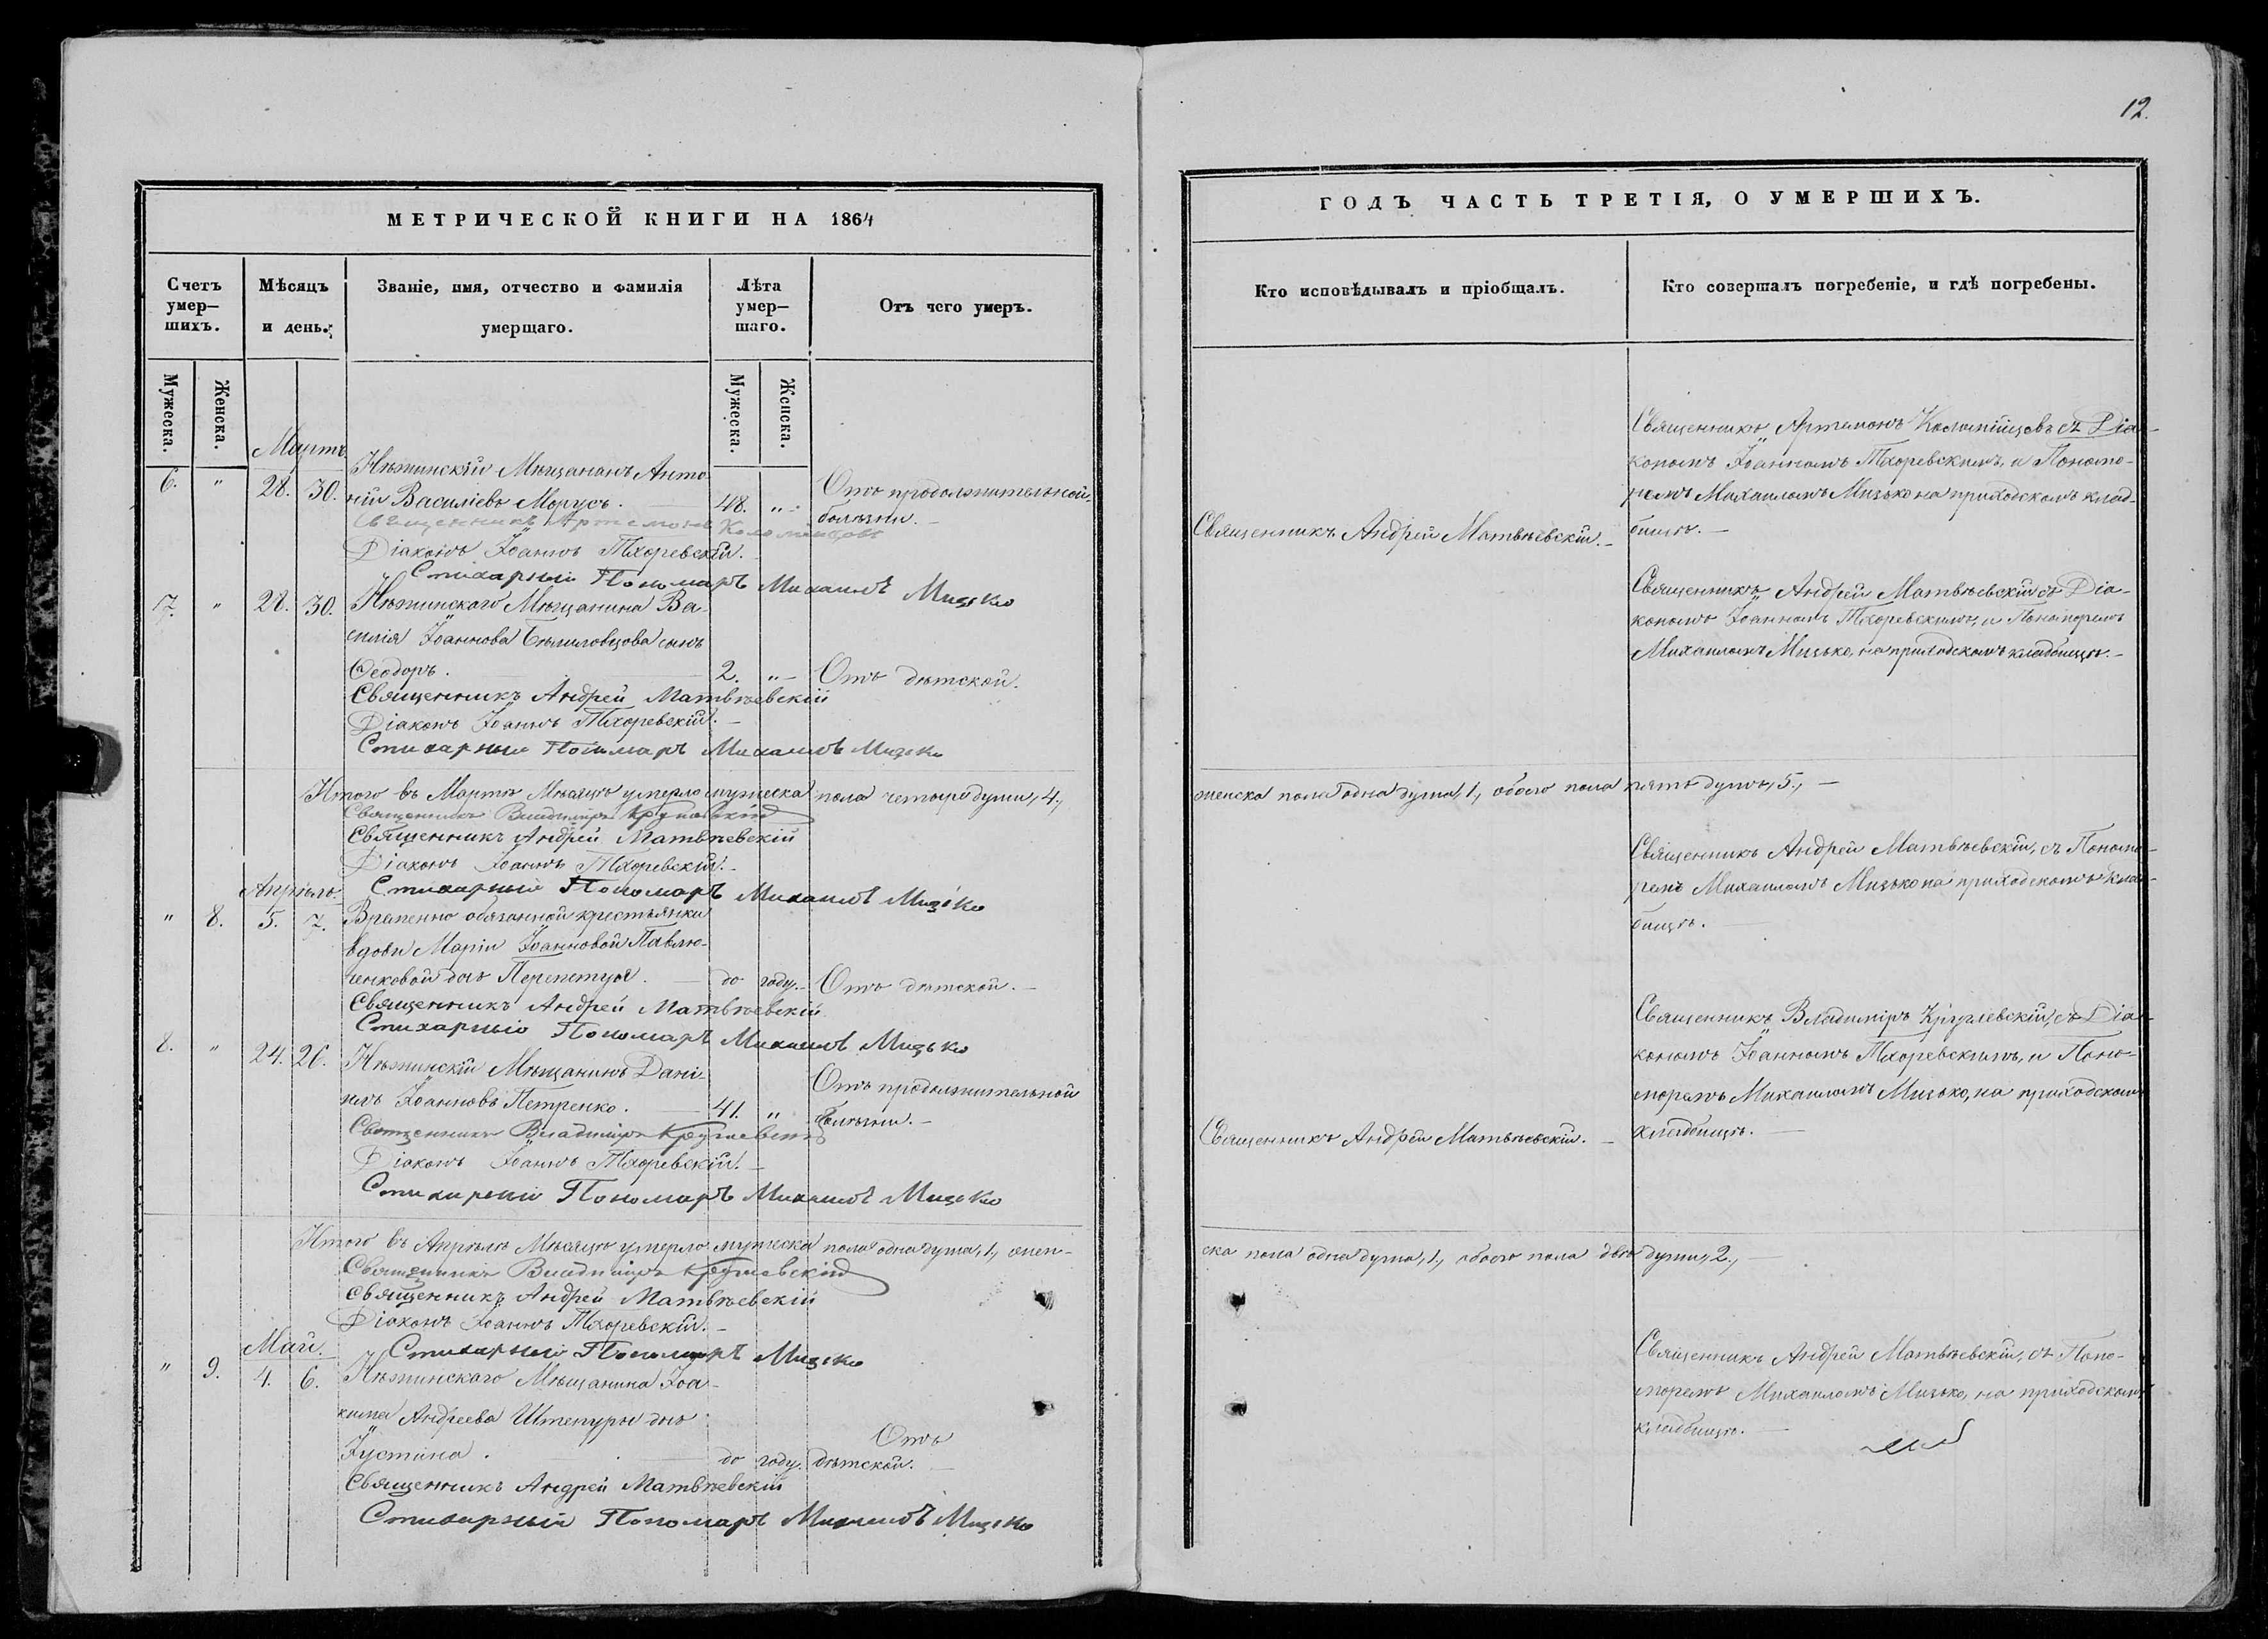 МЕТРИЧЕСКОЙ КНИГИ НА 1864
Счетъ умер-шихъ.
Мѣсяцъ и день.
Званіе, имя, отчество и фамилія умершаго.
Лѣта умер-шаго.
Отъ чего умеръ.
Мужеска.
Женска.
Мужеска.
Женска.
Мартъ
6. " 28. 30. Нѣжинскій Мѣщанинъ Анто-
ній Василіевъ Морусъ. 48. "
Отъ продолжительной
болѣзни.
Священникъ Артемонъ Коломійцовъ
Діаконъ Іоаннъ Тхоревскій.
Стихарный Пономаръ Михаилъ Мизько
7. " 28. 30. Нѣжинскаго Мѣщанина Ва-
силія Іоаннова сынъ
Ѳеодоръ. 2. " Отъ дѣтской.
Священникъ Андрей Матвѣевскій
Діаконъ Іоаннъ Тхоревскій.
Стихарный Пономаръ Михаилъ Мизько
Итого въ Мартѣ Мѣсяцѣ умерло мужеска пола четыре души, 4,
Священникъ Владиміръ Круглевскій
Священникъ Андрей Матвѣевскій
Діаконъ Іоаннъ Тхоревскій.
Стихарный Пономаръ Михаилъ Мизько
Апрѣль.
" 8. 5. 7. Временно обязанной крестьянки
вдовы Маріи Іоанновой Павлю-
ченковой дочь Перепетуя. до году. Отъ дѣтской.
Священникъ Андрей Матвѣевскій
Стихарный Пономаръ Михаилъ Мизько
8. " 24. 26. Нѣжинскій Мѣщанинъ Дані-
илъ Іоанновъ Петренко. 41. "
Отъ продолжительной
болѣзни.
Священникъ Владиміръ Круглевскій
Діаконъ Іоаннъ Тхоревскій.
Стихарный Пономаръ Михаилъ Мизько
Итого въ Апрѣлѣ Мѣсяцѣ умерло мужеска пола одна душа, 1, жен-
Священникъ Владиміръ Круглевскій
Священникъ Андрей Матвѣевскій
Діаконъ Іоаннъ Тхоревскій.
Стихарный Пономаръ Мизько
Май.
" 9. 4. 6. Нѣжинскаго Мѣщанина Іоа-
кима Андреева Штепуры дочь
Іустина. до году. Отъ
дѣтской.
Священникъ Андрей Матвѣевскій
Стихарный Пономаръ Михаилъ Мизько
12.
ГОДЪ ЧАСТЬ ТРЕТІЯ, О УМЕРШИХЪ.
Кто исповѣдывалъ и пріобщалъ.
Кто совершалъ погребеніе, и гдѣ погребены.
Священникъ Андрей Матвѣевскій.
Священникъ Артемонъ Коломійцовъ съ Діа-
кономъ Іоанномъ Тхоревскимъ, и Понома-
ремъ Михаиломъ Мизько на приходскомъ клад-
бищѣ.
Священникъ Андрей Матвѣевскій съ Діа-
кономъ Іоанномъ Тхоревскимъ, и Пономоремъ
Михаиломъ Мизько, на приходскомъ кладбищѣ.
женска пола одна душа, 1, обоего пола пять душъ, 5,
Священникъ Андрей Матвѣевскій, съ Понома-
ремъ Михаиломъ Мизько на приходскомъ клад-
бищѣ.
Священникъ Андрей Матвѣевскій.
Священникъ Владиміръ Круглевскій, съ Діа-
кономъ Іоанномъ Тхоревскимъ, и Поно-
моремъ Михаиломъ Мизько, на приходскомъ
кладбищѣ.
ска пола одна душа, 1, обоего пола двѣ души, 2,
Священникъ Андрей Матвѣевскій, съ Поно-
моремъ Михаиломъ Мизько, на приходскомъ
кладбищѣ.